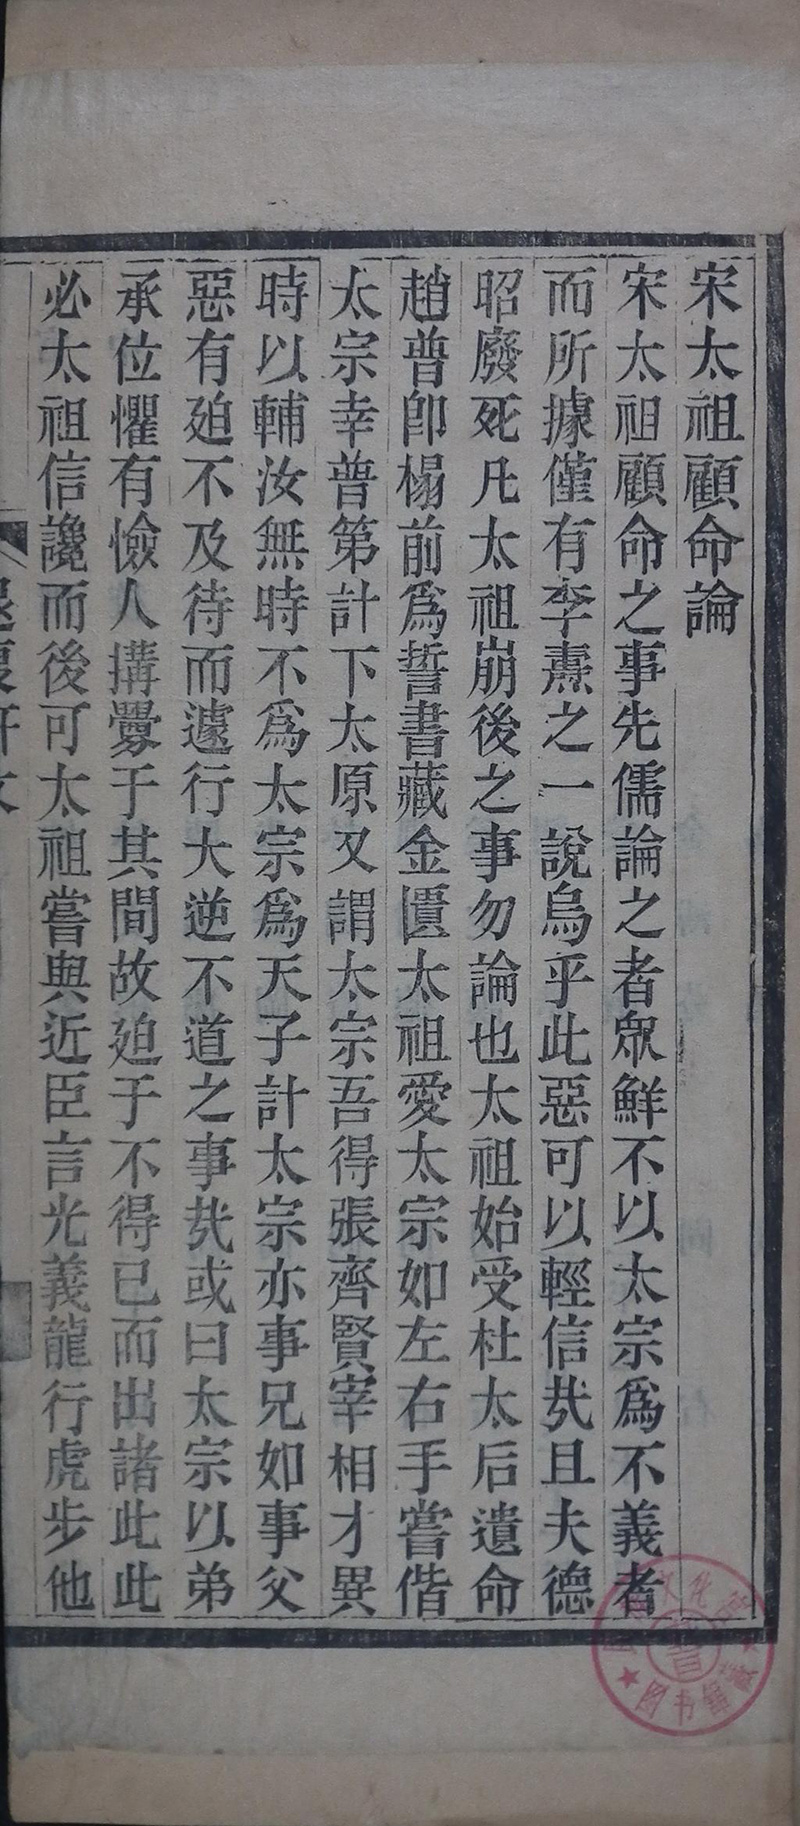 宋太祖顧命論
宋太祖顧命之事先儒論之者眾鮮不以太宗爲不義者
而所據僅有李燾之一說烏乎此惡可以輕信㦲且夫德
昭廢死凡太祖崩後之事勿論也太祖始受杜太后遺命
趙普卽榻前爲誓書藏金匱太祖愛太宗如左右手嘗偕
太宗幸普第計下太原又謂太宗吾得張齊賢宰相才異
時以輔汝無時不爲太宗爲天子計太宗亦事兄如事父
惡有廹不及待而遽行大逆不道之事㦲或曰太宗以弟
承位懼有憸人搆釁于其間故廹于不得已而出諸此此
必太祖信讒而後可太祖嘗與近臣言光義龍行虎步他